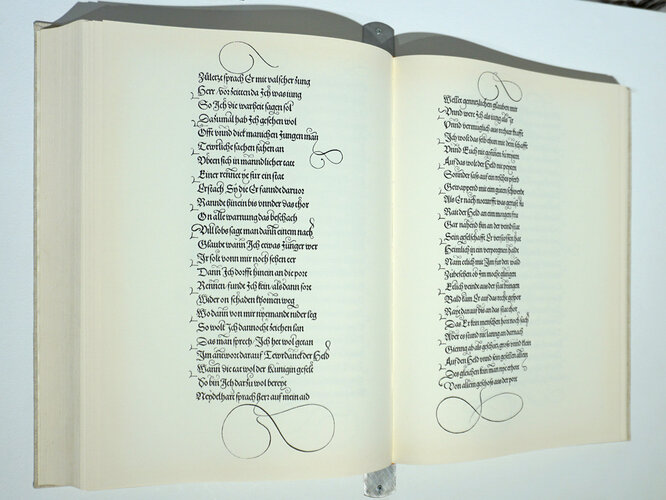 Zůletzt sprach Er mit valscher zung
Herr / vor zeitten da Ich was iung
So Ich die warheit sagen sol
Dazůmal hab Ich gesehen wol
Offt vnnd dick manichen Jungen man
Tewrliche sachen fahen an
Vben sich in manndlicher tate
Einer rennet ye für ein stat
Erstach Sy die Er fanndt daruor
Ranndt hinein bis vnnder das thor
On alle warnung das beschach
Vill lobs sagt man dann einem nach
Glaubt wann Ich etwas Jünger wer
Ir solt wenn mir noch sehen er
Dann Ich dorfft hinan an die port
Rennen / fundt Ich kein / als dann fort
Wider on schaden khomen weg
Wo dann vor mir nyemandt nider leg
So wolt Ich dannocht zeichen lan
Das man sprech / Ich het wol getan
Im antwort darauf Tewrdanck der Held
Wann die tat wol der Künigin gefelt
So bin Ich darzů wol bereyt
Neydelhart sprach Herr auf mein aid
Wellet genntzlichen glauben mir
Vnnd were Ich als iung als Ir
Vnnd vermüglich aus rechter krafft
Ich wolt das selb thun mit dem schafft
Vnnd Euch nit gesinen zu reyten
Auf das wolt der Held nit peyten
Sonnder saß auf ein risches pferd
Gewappent mit eim guten schwerdt
Als Er nach notturfft was gerüst
Rait der Held an eim morgen frü
Gar nahend hin an der veindt stat
Sein geselschafft Er verstossen hat
Heimlich in ein verporgnen haldt
Nam etlich mit Im für den wald
Zubesehen ob Im mocht gelungen
Etlich veindt aus der stat bringen
Bald kam Er auf das recht gespor
Rayt daran bis an das stat thor
Das Er kein menschen hört noch sach
Aber es stund nit lanng an darnach
Gienng ab als geschütz groß vnnd klein
Auf den Held vnnd sein gesellen allein
Des gleichen kein man nye erhort
Von allem geschoß aus der port